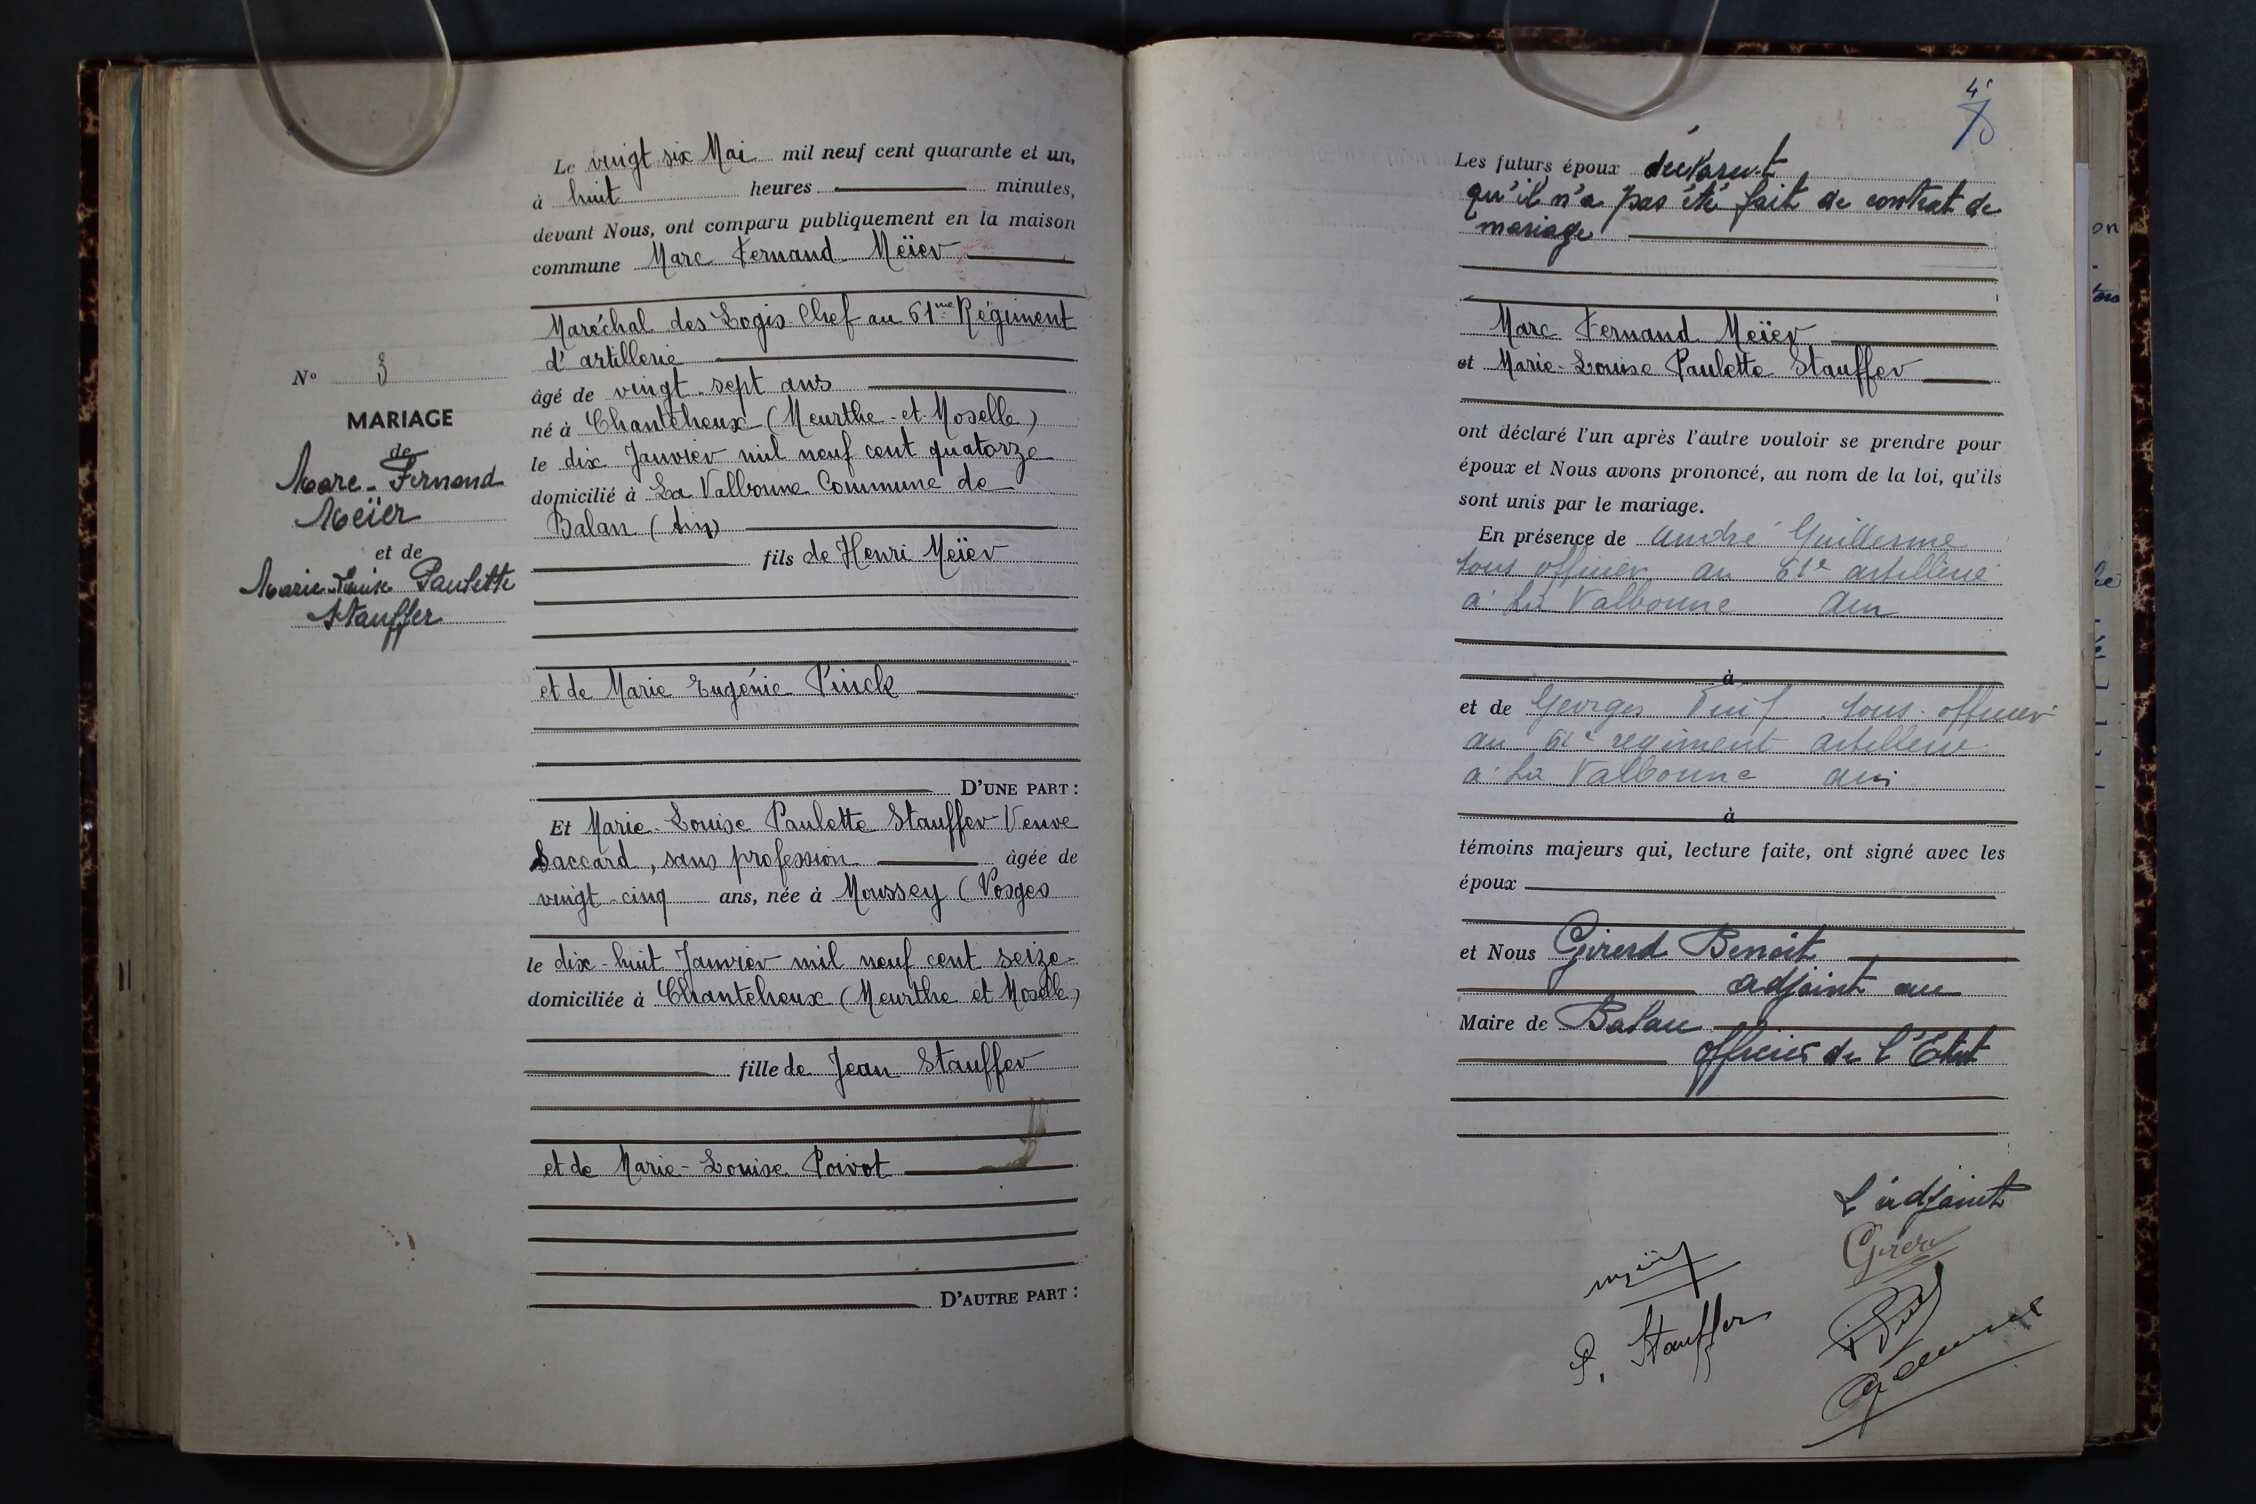 Le vingt six Mai mil neuf cent quarante et un,
à huit heures minutes,
devant Nous, ont comparu publiquement en la maison
commune Marc Fernand Meïer
Maréchal des Logis Chef au 61me Régiment
d'artillerie
âgé de vingt-sept ans
né à Chanteheux (Meurthe-et-Moselle)
le dix Janvier mil neuf cent quatorze
domicilié à La Valbonne Commune de
Balan (Ain)
fils de Henri Meïer
et de Marie Eugénie Pinck
D'UNE PART :
Et Marie-Louise Paulette Stauffer Veuve
Saccard, sans profession âgée de
vingt-cinq ans, née à Moussey (Vosges
le dix-huit Janvier mil neuf cent seize
domiciliée à Chanteheux (Meurthe et Moselle)
fille de Jean Stauffer
et de Marie-Louise Poivot
D'AUTRE PART :
N° 3
MARIAGE
de
Marc-Fernand
Meïer
et de
Marie-Louise Paulette
Stauffer
Les futurs époux déclarent
qu'il n'a pas été fait de contrat de
mariage
Marc Fernand Meïer
et Marie-Louise Paulette Stauffer
ont déclaré l'un après l'autre vouloir se prendre pour
époux et Nous avons prononcé, au nom de la loi, qu'ils
sont unis par le mariage.
En présence de André Guillerme
sous officier au 61e artillerie
à La Valbonne Ain
à
et de Georges sous-officier
au 61e regiment artillerie
à La Valbonne Ain
à
témoins majeurs qui, lecture faite, ont signé avec les
époux
et Nous Girerd Benoît
adjoint au
Maire de Balan
officier de l'Etat
L'adjoint
Girerd
P. Stauffer